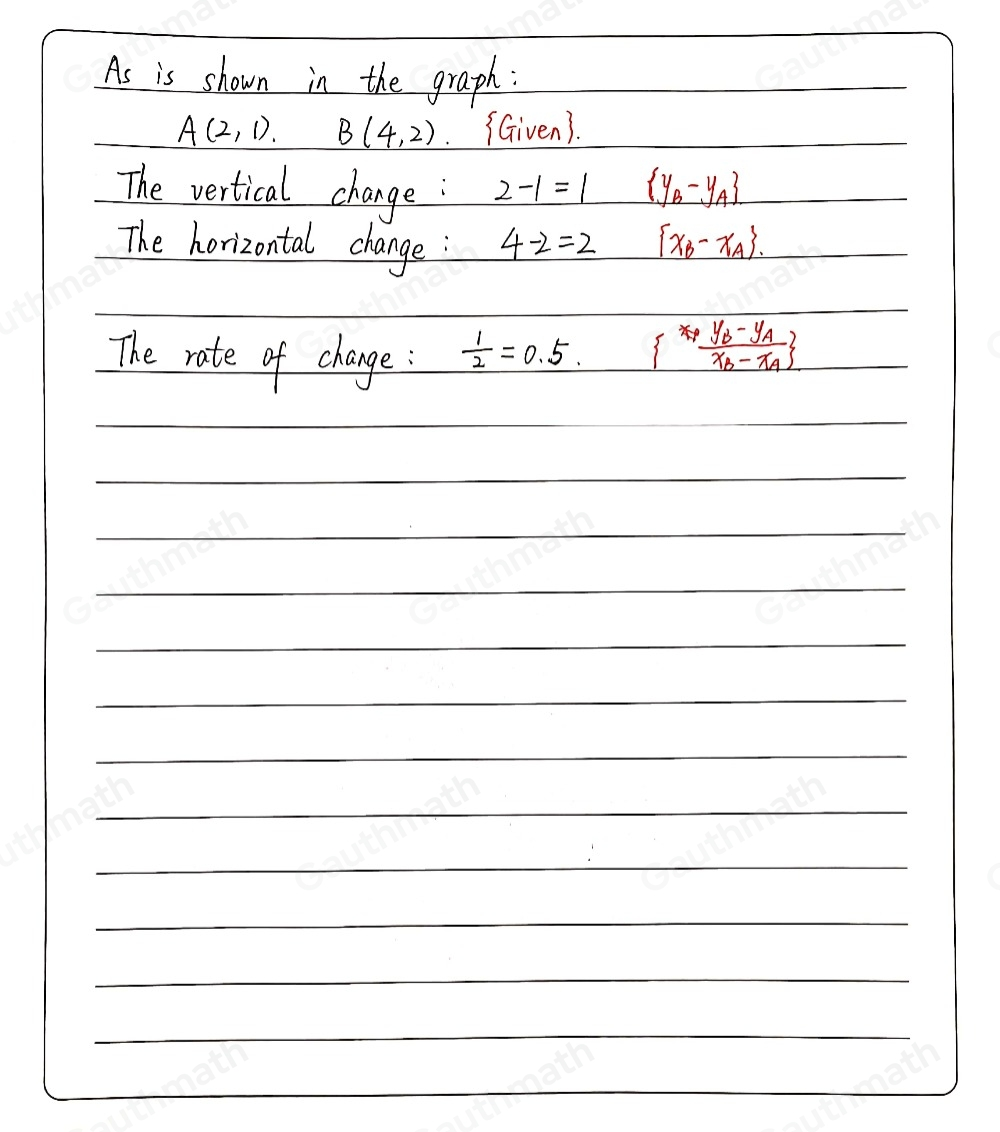 As is shown in the graph:
A(2,1). B(4,2). {Given}.
The vertical change: 2-1=1 {y_B-y_A}
The horizontal change: 4-2=2 {x_B-x_A}.
The rate of change: 1/2=0.5. {y_B-y_A/x_B-x_A}
Gauthmath